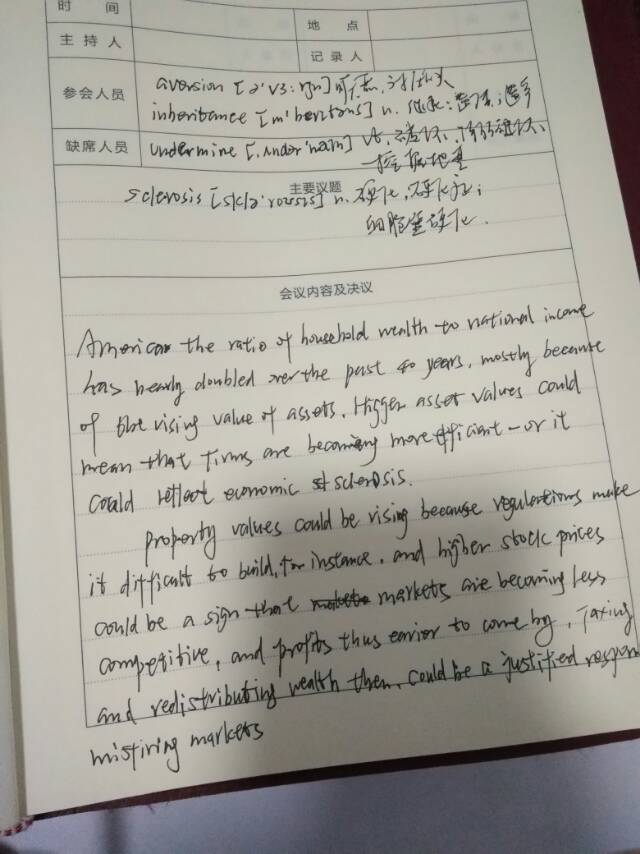 时 间
地 点
主 持 人
记 录 人
参会人员
aversion [ə'vɜ:ʃn] 厌恶,讨厌的人
inheritance [ɪn'herɪtəns] n. 继承;遗传;遗产
缺席人员
undermine [ˌʌndər'maɪn] vt.
挖掘地基
主要议题
sclerosis [sklə'roʊsɪs] n. 硬化,硬化症;
细胞壁硬化.
会议内容及决议
American the ratio of household wealth to national income
has nearly doubled over the past 40 years, mostly because
of the rising value of assets. Higger asset values could
mean that firms are becoming more efficient - or it
could reflect economic sclerosis.
property values could be rising because regulations make
it difficult to build, for instance, and higher stock prices
could be a sign that markets are becoming less
competitive, and profits thus easier to come by, Taxing
and redistributing wealth then, could be a justified respon
misfiring markets